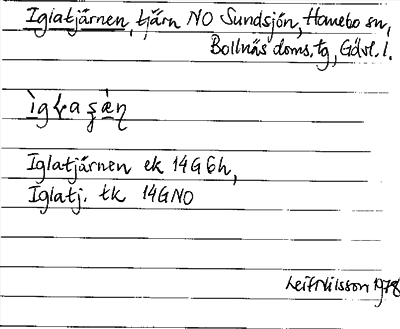 Iglatjärnen, tjärn NO Sundsjön, Hanebo sn,
Bollnäs doms.tg, Gävl. l.
Iglatjärnen ek 14G6h,
Iglatj. tk 14GNO
Leif Nilsson 1978